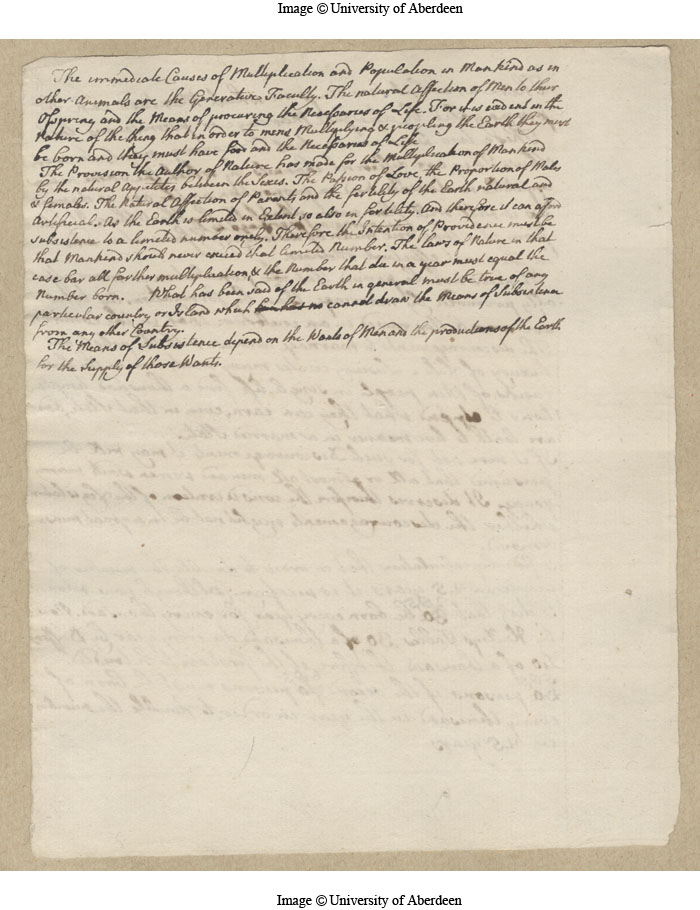 Image © University of Aberdeen
The immediate Causes of Multiplication and Population in Mankind as in
other Animals are the Generative Faculty. The natural Affection of Men to their
Ofspring and the Means of procuring the Necessaries of Life. For it is evident in the
Nature of the thing that in order to mens Multiplying & peopling the Earth they must
be born and they must have food and the Necessaries of Life
The Provision the Author of Nature has made for the Multiplication of Mankind
by the natural Appetites between the Sexes. The Passion of Love, the Proportion of Males
& Females. The Natural Affection of Parents and the fertility of the Earth natural and
Artificial. As the Earth is limited in Extent so also in fortility. And therefore it can afford
subsistence to a limited number onely. Therefore the Intention of Providence must be
that Mankind should never exceed that limited Number. The laws of Nature in that
case bar all farther multiplication, & the Number that die in a year must equal the
Number born. What has been said of the Earth in general must be true of any
particular country or Island which cannot draw the Means of Subsistence
from any other Country.
The Means of Subsistence depend on the Wants of Men and the productions of the Earth
for the Supply of those Wants.
Image © University of Aberdeen